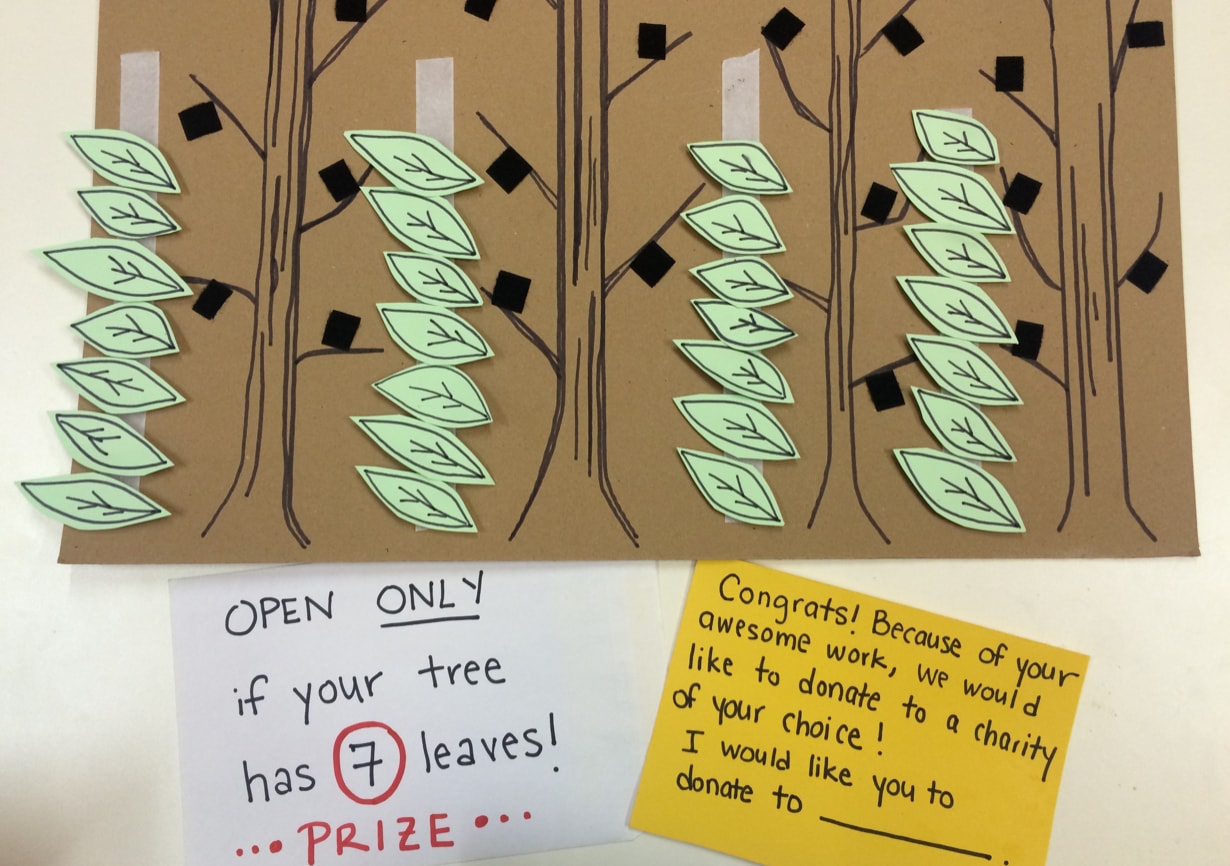 OPEN ONLY
if your tree
has 7 leaves!
... PRIZE ...
Congrats! Because of your
awesome work, we would
like to donate to a charity
of your choice!
I would like you to
donate to __________.